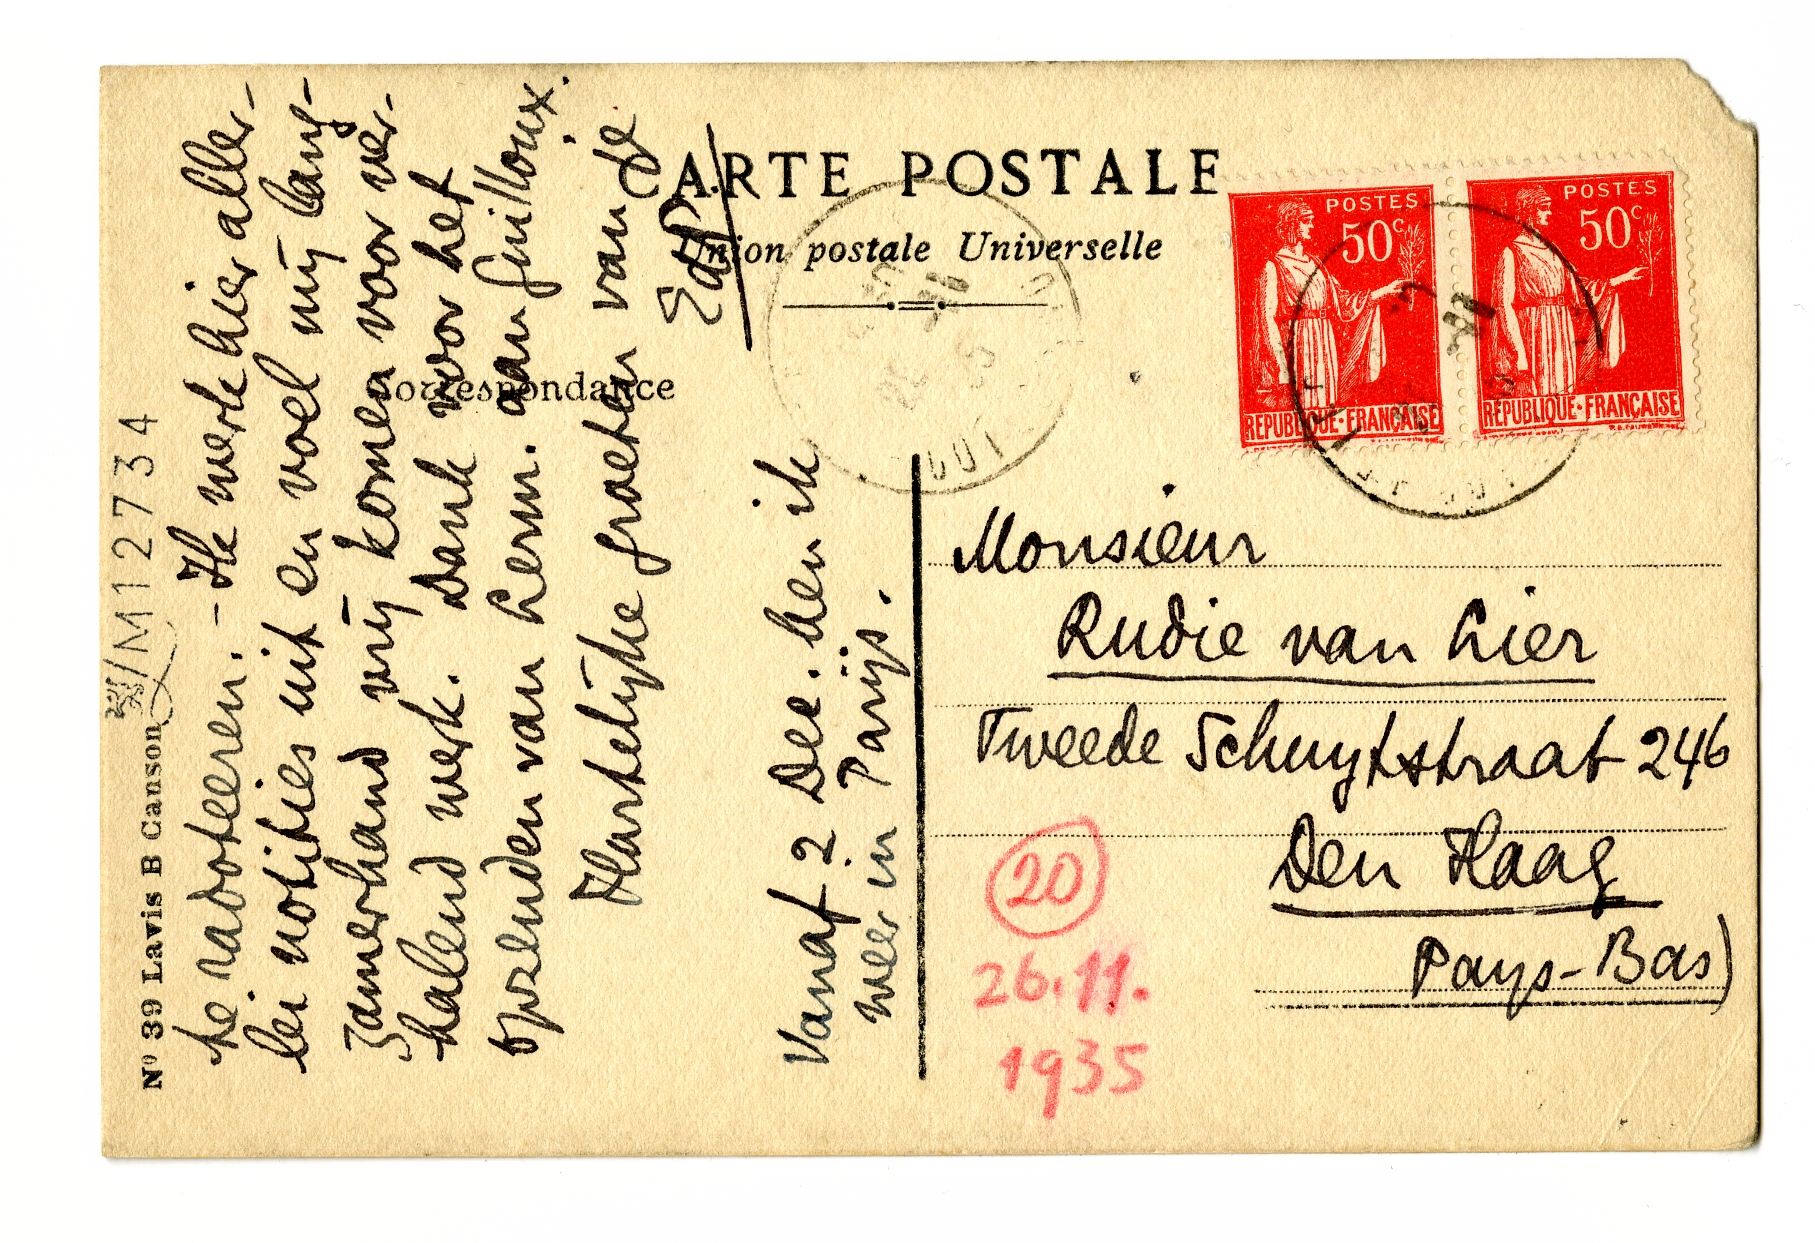 CARTE POSTALE
Union postale Universelle
Correspondance
Nº 39 Lavis B Canson
/M12734
te radoteeren. – Ik werk hier aller-
lei notities uit en voel mij lang-
zamerhand vrij komen voor ver-
halend werk. Dank voor het
opzenden van Lenin. aan Guilloux.
Hartelijke groeten van je
EdP
Vanaf 2 Dec. ben ik
weer in Parijs.
POSTES
50c
RÉPUBLIQUE·FRANÇAISE
POSTES
50c
RÉPUBLIQUE·FRANÇAISE
Monsieur
Rudie van Lier
Tweede Schuytstraat 246
Den Haag
Pays-Bas)
20
26.11.
1935